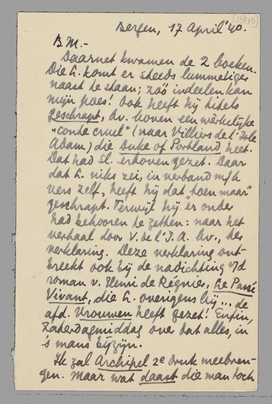 Bergen, 17 April '40.
B.M.-
Daarnet kwamen de 2 boeken.
Die G. komt er steeds lummeliger
naast te staan; zóó indeelen kan
mijn poes! Ook heeft hij titels
geschrapt, bv. boven een werkelijke
"conte cruel" (naar Villiers de l'Isle
Adam) die Duke of Portland heet.
Dat had Sl. erboven gezet. Daar
dat G. niks zei, in verband m/h
vers zelf, heeft hij dat toen maar
geschrapt. Terwijl hij er onder
had behooren te zetten: naar het
verhaal door V. de l'I.A. bv., der
verklaring. Deze verklaring ont-
breekt ook bij de nadichting v/d
roman v. Henri de Régnier, Le Passé
Vivant, die G. overigens bij ... de
afd. Vrouwen heeft gezet! Enfin,
Zaterdagmiddag over dat alles, in
's mans bijzijn.
Ik zal Archipel 2e druk meebren-
gen. Maar wat daast die man toch